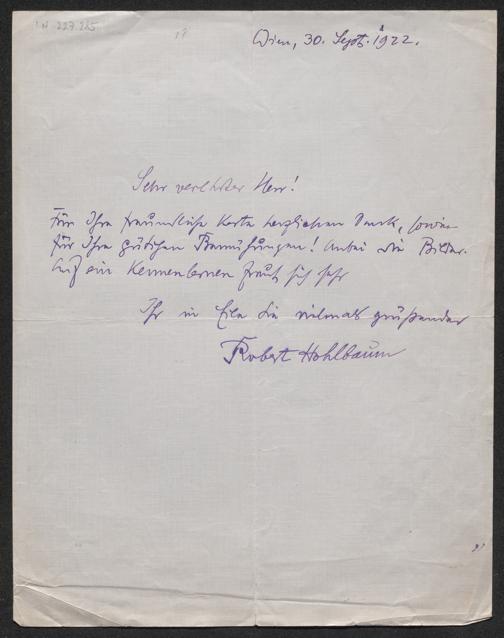 I.N. 227.225
Wien, 30. Sept. 1922.
Sehr verehrter Herr!
Für Ihre freundliche Karte herzlichen Dank, sowie
für Ihre gütigen Bemühungen! Anbei die Bilder.
Auf ein Kennenlernen freut sich sehr
Ihr in Eile Sie vielmals grüßender
Robert Hohlbaum